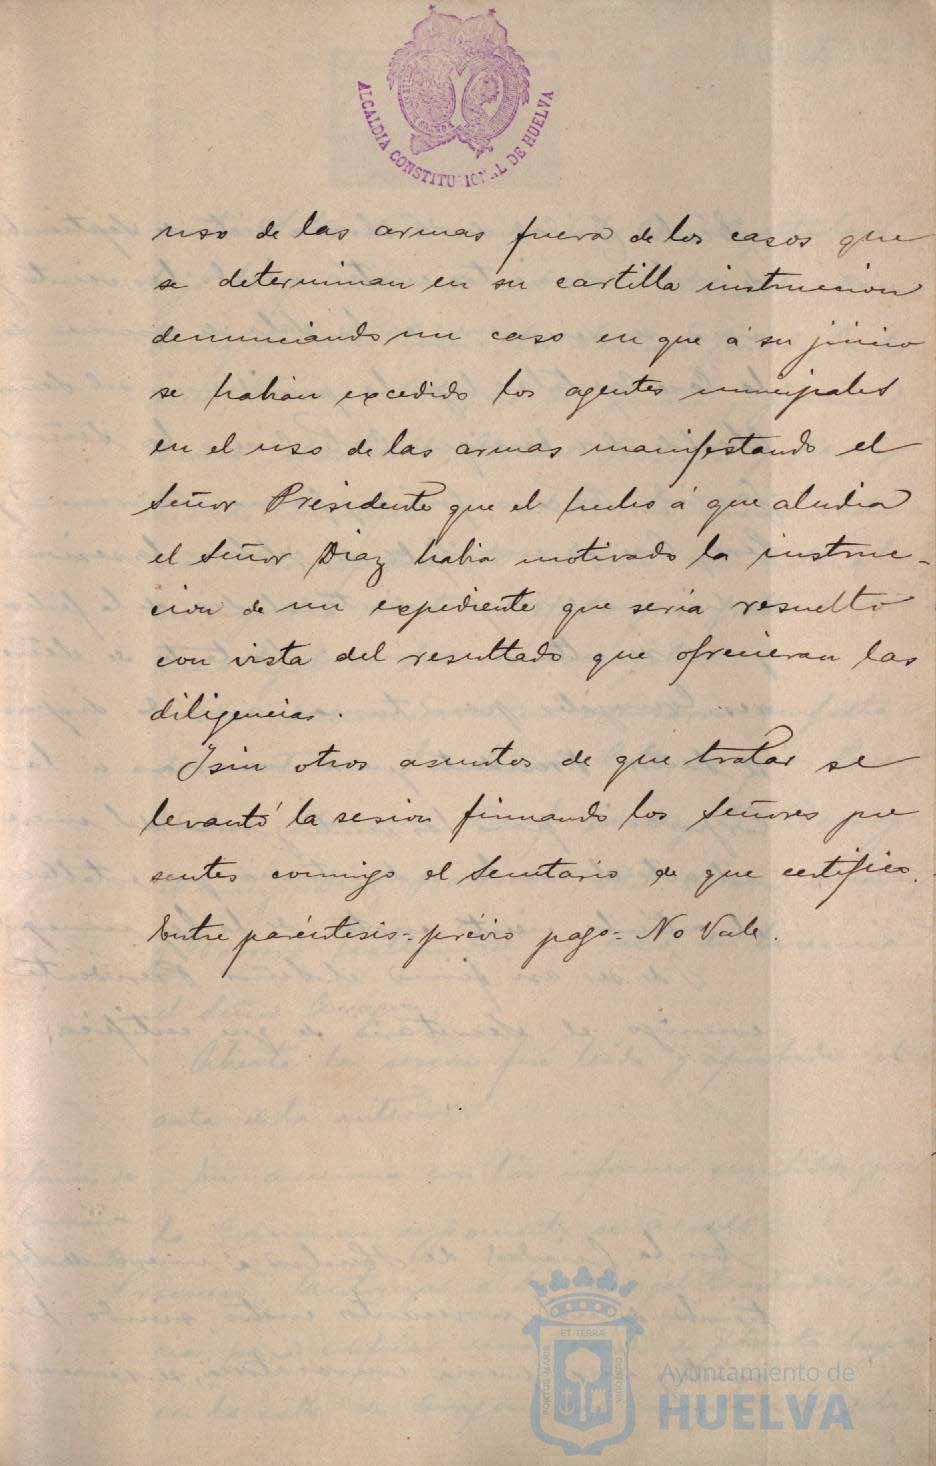 ALCALDIA CONSTITUCIONAL DE HUELVA
uso de las armas fuera de los casos que
se determinan en su cartilla instruccion
denunciando un caso en que á su juicio
se habian excedido los agentes municipales
en el uso de las armas manifestando el
Señor Presidente que el hecho á que aludia
el Señor Diaz habia motivado la instruc-
cion de un expediente que seria resuelto
con vista del resultado que ofrecieran las
diligencias.
Y sin otros asuntos de que tratar se
levantó la sesion firmando los Señores pre
sentes conmigo el Secretario de que certifico.
Entre paréntesis=prévio pago=No Vale.
Ayuntamiento de
HUELVA